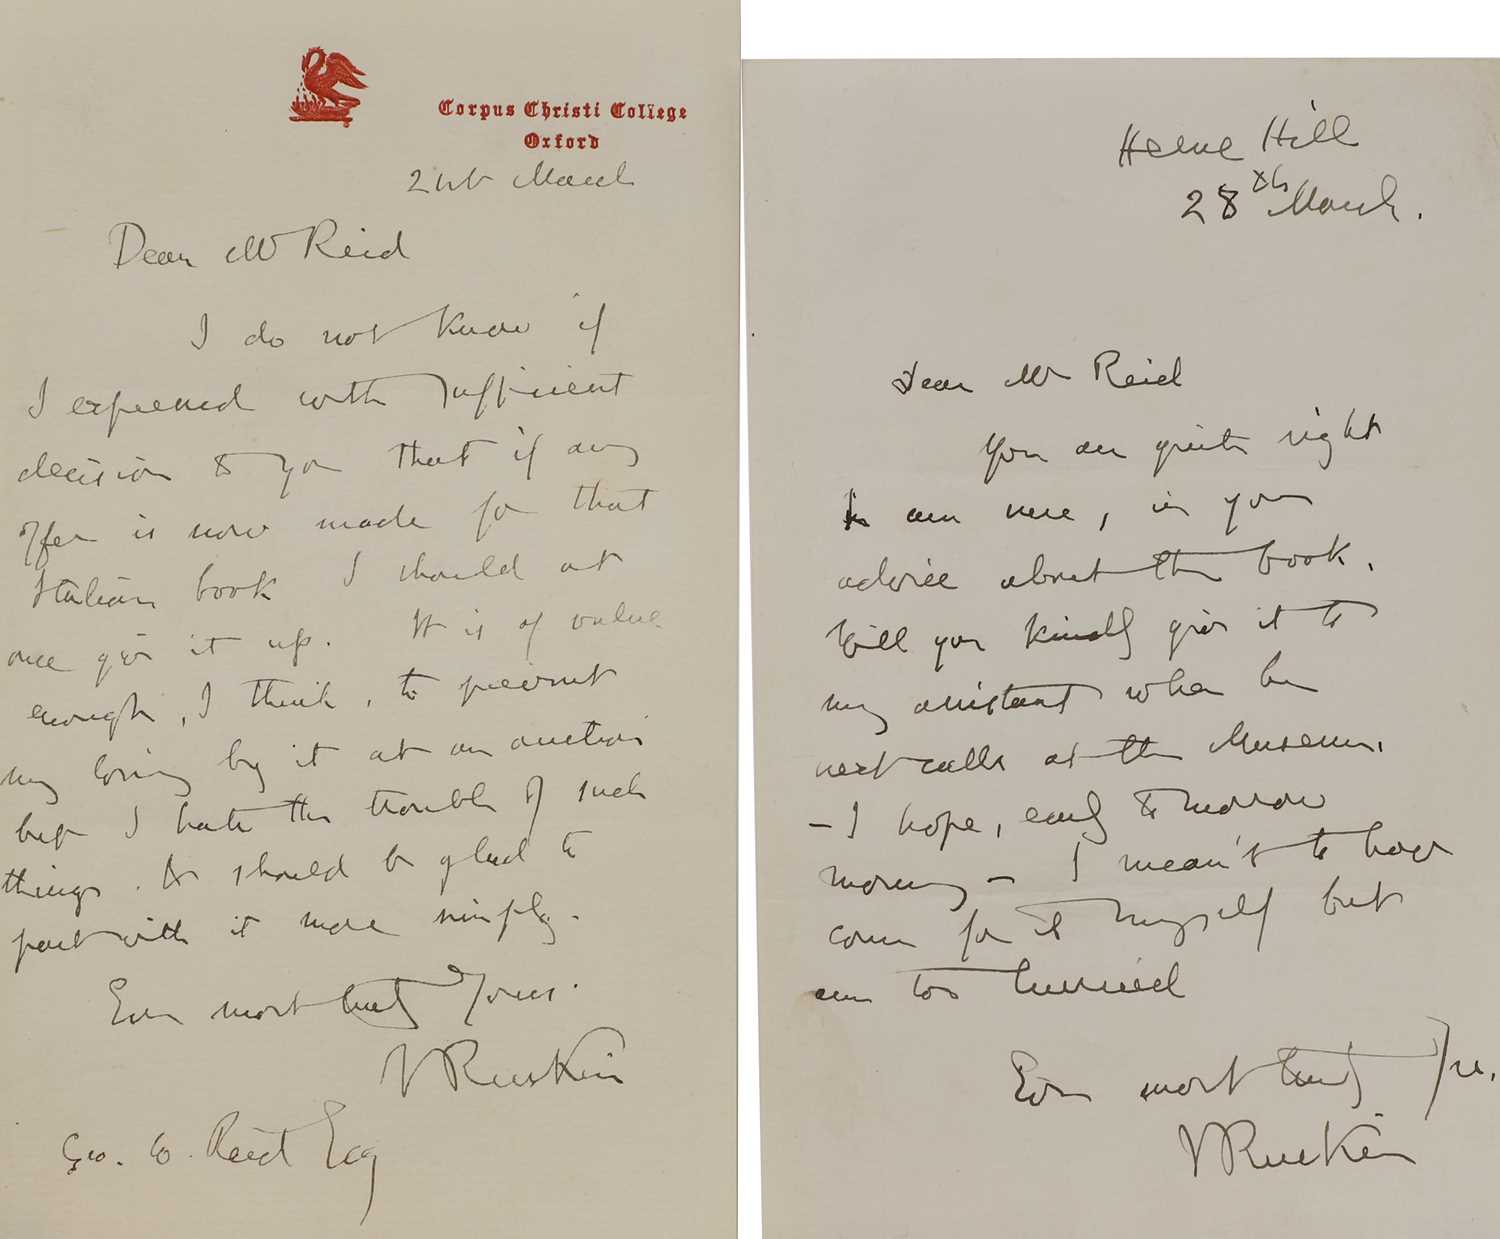 Corpus Christi College
Oxford
21st March
Dear Mr Reid
I do not know if
I expressed with sufficient
decision to you that if any
offer is now made for that
Italian book I should at
once give it up. It is of value
enough, I think, to prevent
my losing by it at an auction
but I hate the trouble of such
things. & should be glad to
part with it more simply.
Ever most truly Yours.
J Ruskin
Geo. W. Reid Esq
Herne Hill
28th March.
Dear Mr Reid
You are quite right
as ever, in your
advice about the book.
Will you kindly give it to
my assistant when he
next calls at the Museum.
- I hope, early tomorrow
morning - I meant to have
come for it myself but
am too hurried
Ever most truly Yrs.
J Ruskin